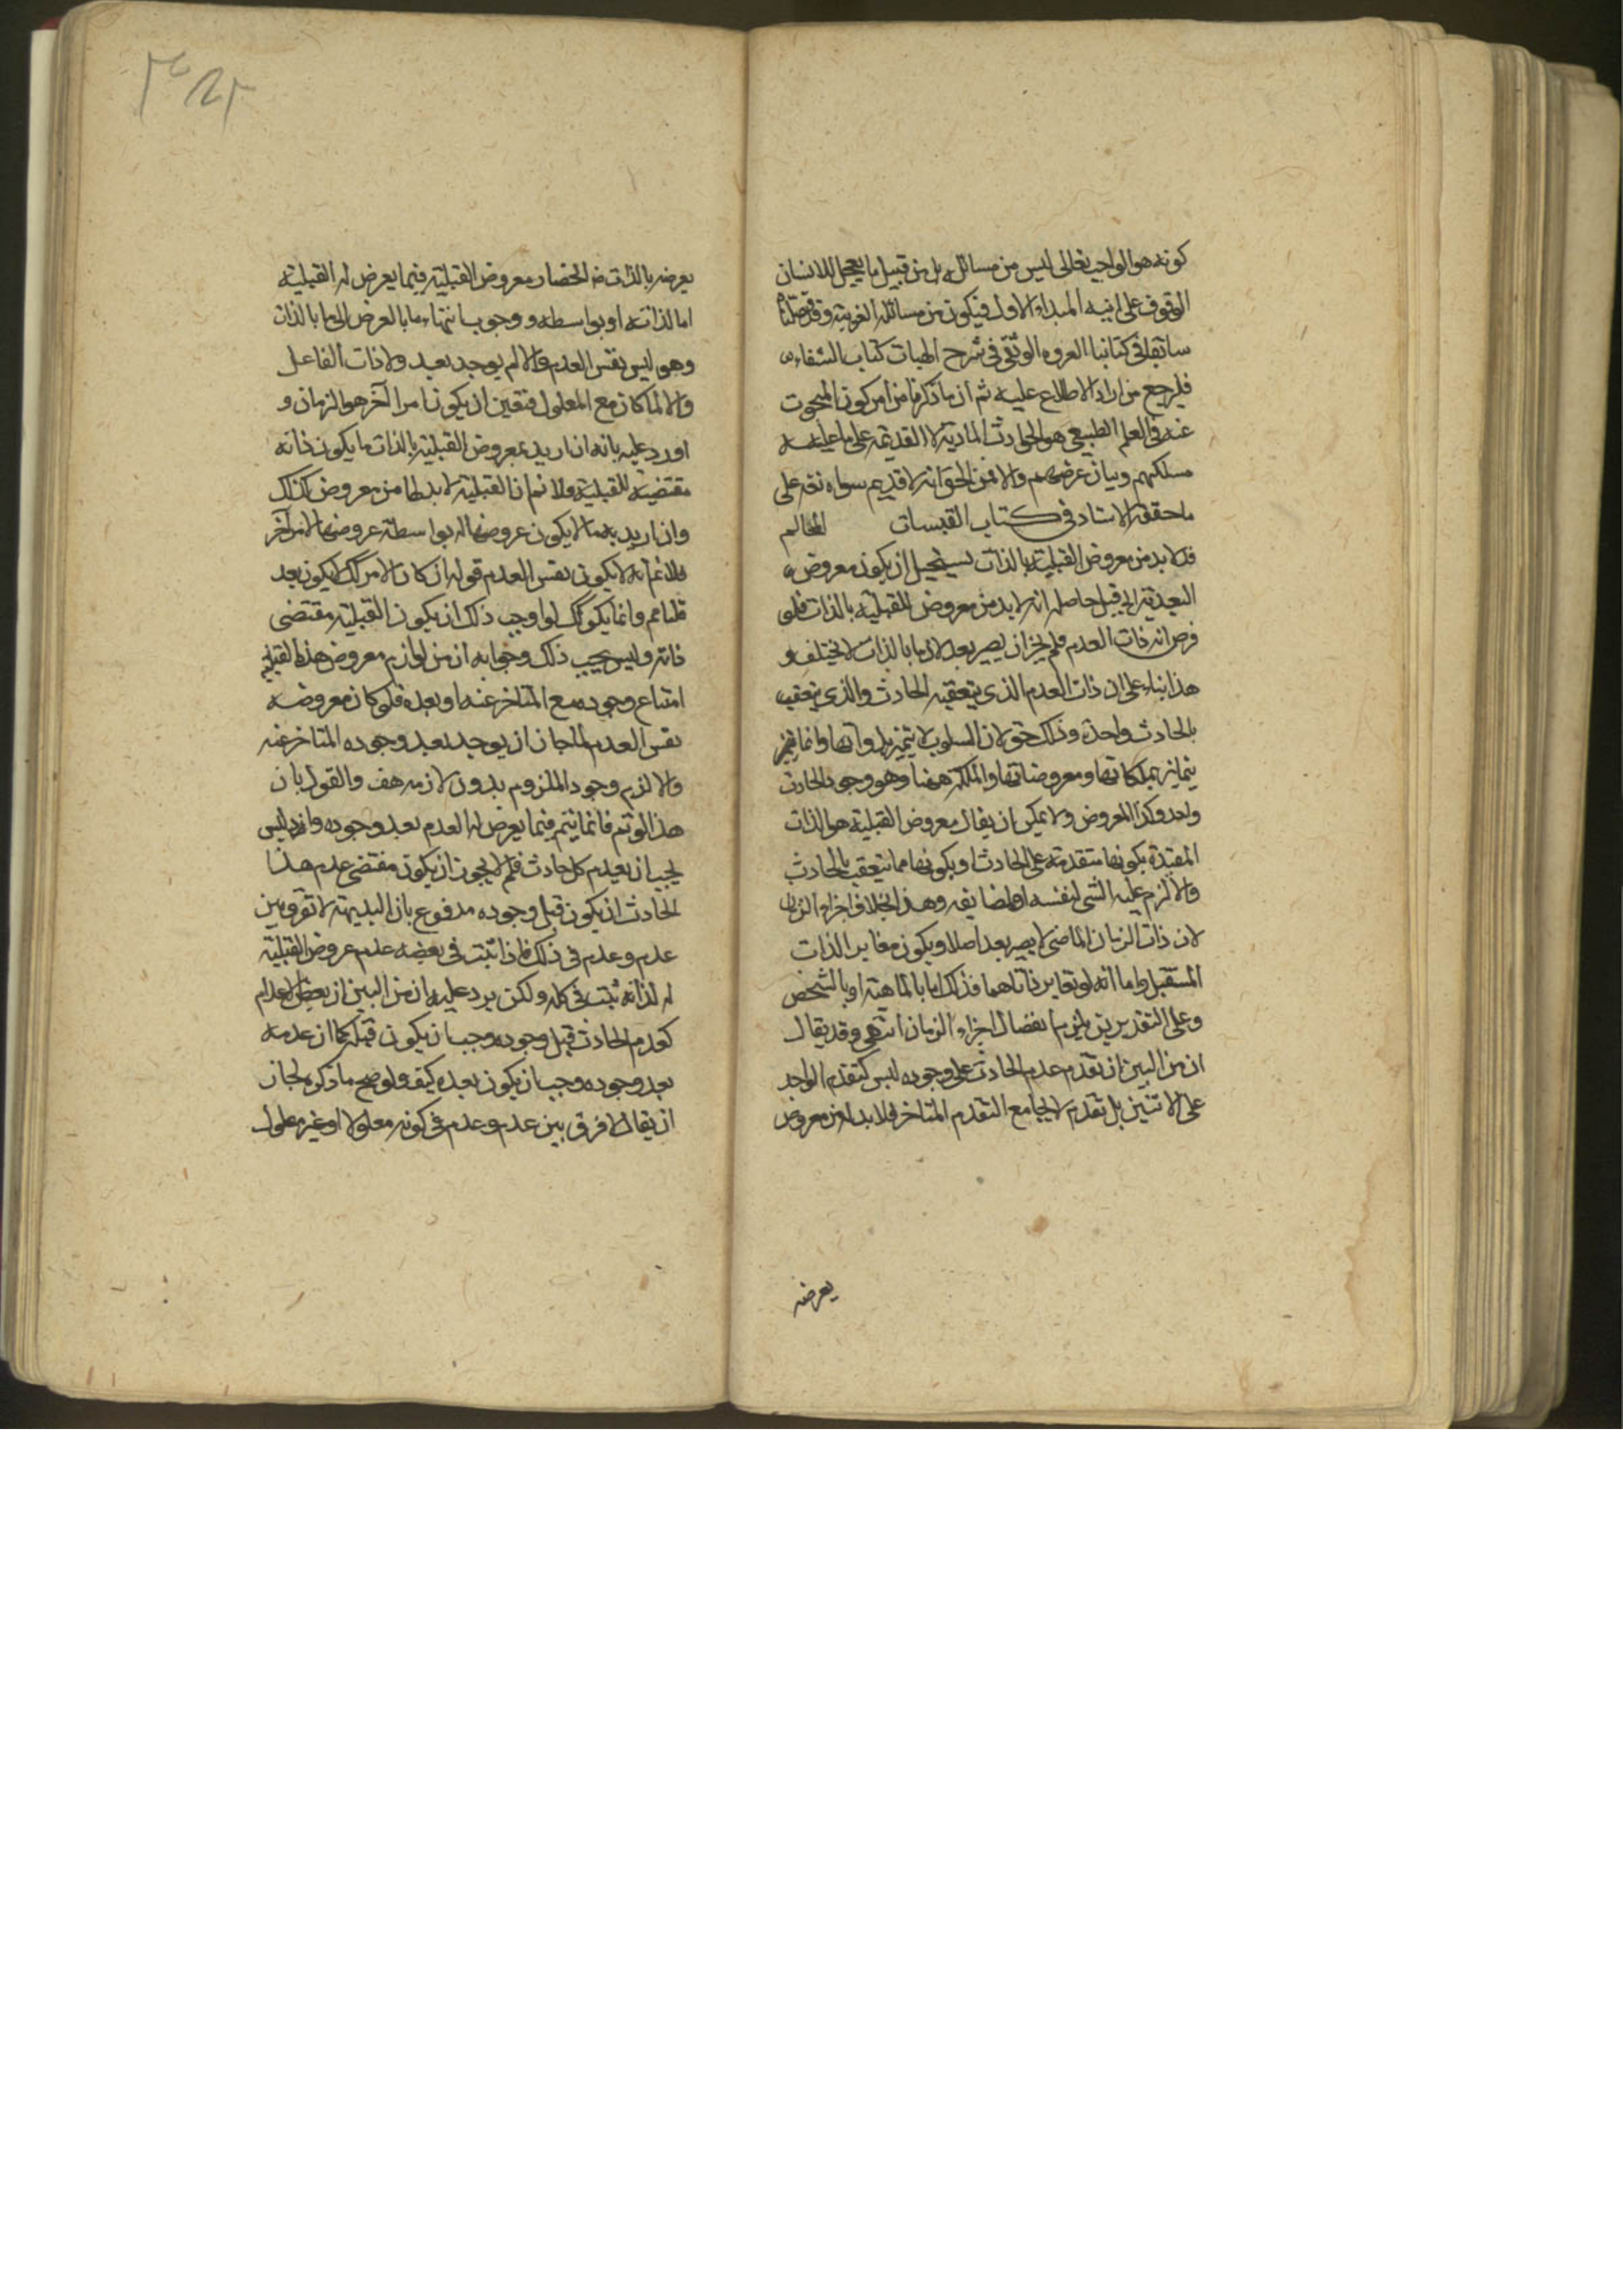 كونه هو الواجب تعالى ليس من مسائله بل من قبيل ما يعجل للانسان
الوقوف على انية المبداء الاول فيكون من مسائله الغريبة وقد فصلناه
سابقا في كتابنا العروة الوثقى في شرح الهيات كتاب الشفاء
فليرجع من اراد الاطلاع عليه ثم ان ما ذكرنا من امر كون المبحوث
عنه في العلم الطبيعي هو الحوادث المادية لا القديمة على ما عليه
مسلكهم وبيان غرضهم والا فمن الحق انه لا قديم سواه تعه على
ما حققه الاستاد في كتاب القبسات
فلا بد من معروض القبلية بالذات يستحيل ان يكون معروض
البعدية الى قبل حاصله انه لا بد من معروض للقبلية بالذات فلو
فرض انه ذات العدم فلم يجز ان يصير بعد لان ما بالذات لا يختلف و
هذا بناء على ان ذات العدم الذى يتعقبه الحادث والذى يتعقب
بالحادث واحدة وذلك حق لان السلوب لا يتميز بذواتها وانما
يتمايز بملكاتها ومعروضاتها والملكة ههنا وهو وجود الحادث
واحد وكذا المعروض ولا يمكن ان يقال معروض القبلية هو الذات
المقيدة بكونها متقدمة على الحادث او بكونها مما يتعقب بالحادث
والا لزم علية الشى لنفسه او لمضايفه وهذا بخلاف اجزاء الزمان
لان ذات الزمان الماضى لا يصير بعد اصلا ويكون مغاير الذات
المستقبل واما انه لو تغاير ذاتاهما فذلك اما بالماهية او بالشخص
وعلى التقديرين يلزم انفصال اجزاء الزمان انتهى وقد يقال
ان من البين ان تقدم عدم الحادث على وجوده ليس كتقدم الواحد
على الاثنين بل تقدم لا يجامع المتقدم المتاخر فلا بد له من معروض
يعرضه
يعرضه بالذات ضه انحصار معروض القبلية فيما يعرض له القبلية
اما لذاته او بواسطه ووجوب انتهاء ما بالعرض الى ما بالذات
وهو ليس نفس العدم والا لم يوجد بعد ولا ذات الفاعل
والا لما كان مع المعلول فتعين ان يكون امرا آخر هو الزمان و
اورد عليه بانه ان اريد بمعروض القبلية بالذات ما يكون ذاته
مقتضية للقبلية فلا نم ان القبلية لا بد لها من معروض كذلك
وان اريد به ما لا يكون عروضها له بواسطة عروضها لامر آخر
فلا نم انه لا يكون نفس العدم قوله ان كان الامر كك لا يكون بعد
قلنا نعم وانما يكون كك لو اوجب ذلك ان يكون القبلية مقتضى
ذاته وليس يجب ذلك وجوابه ان من لوازم معروض هذه القبلية
امتناع وجوده مع المتاخر عنه او بعده فلو كان معروضه
نفس العدم لما جاز ان يوجد بعد وجوده المتاخر عنه
والا لزم وجود الملزوم بدون لازمه هف والقول بان
هذا لو تم فانما يتم فيما يعرض له العدم بعد وجوده وانه ليس
يجب ان يعدم كل حادث فلم لا يجوز ان يكون مقتضى عدم هذا
الحادث ان يكون قبل وجوده مدفوع بان البديهة لا تفرق بين
عدم وعدم في ذلك فاذا ثبت في بعضه عدم عروض القبلية
له لذاته ثبت في كله ولكن يرد عليه ان من البين ان بعض الاعدام
كعدم الحادث قبل وجوده وجب ان يكون قبله كما ان عدمه
بعد وجوده وجب ان يكون بعده كيف ولو صح ما ذكره لجاز
ان يقال لا فرق بين عدم وعدم في كونه معلولا او غير معلول